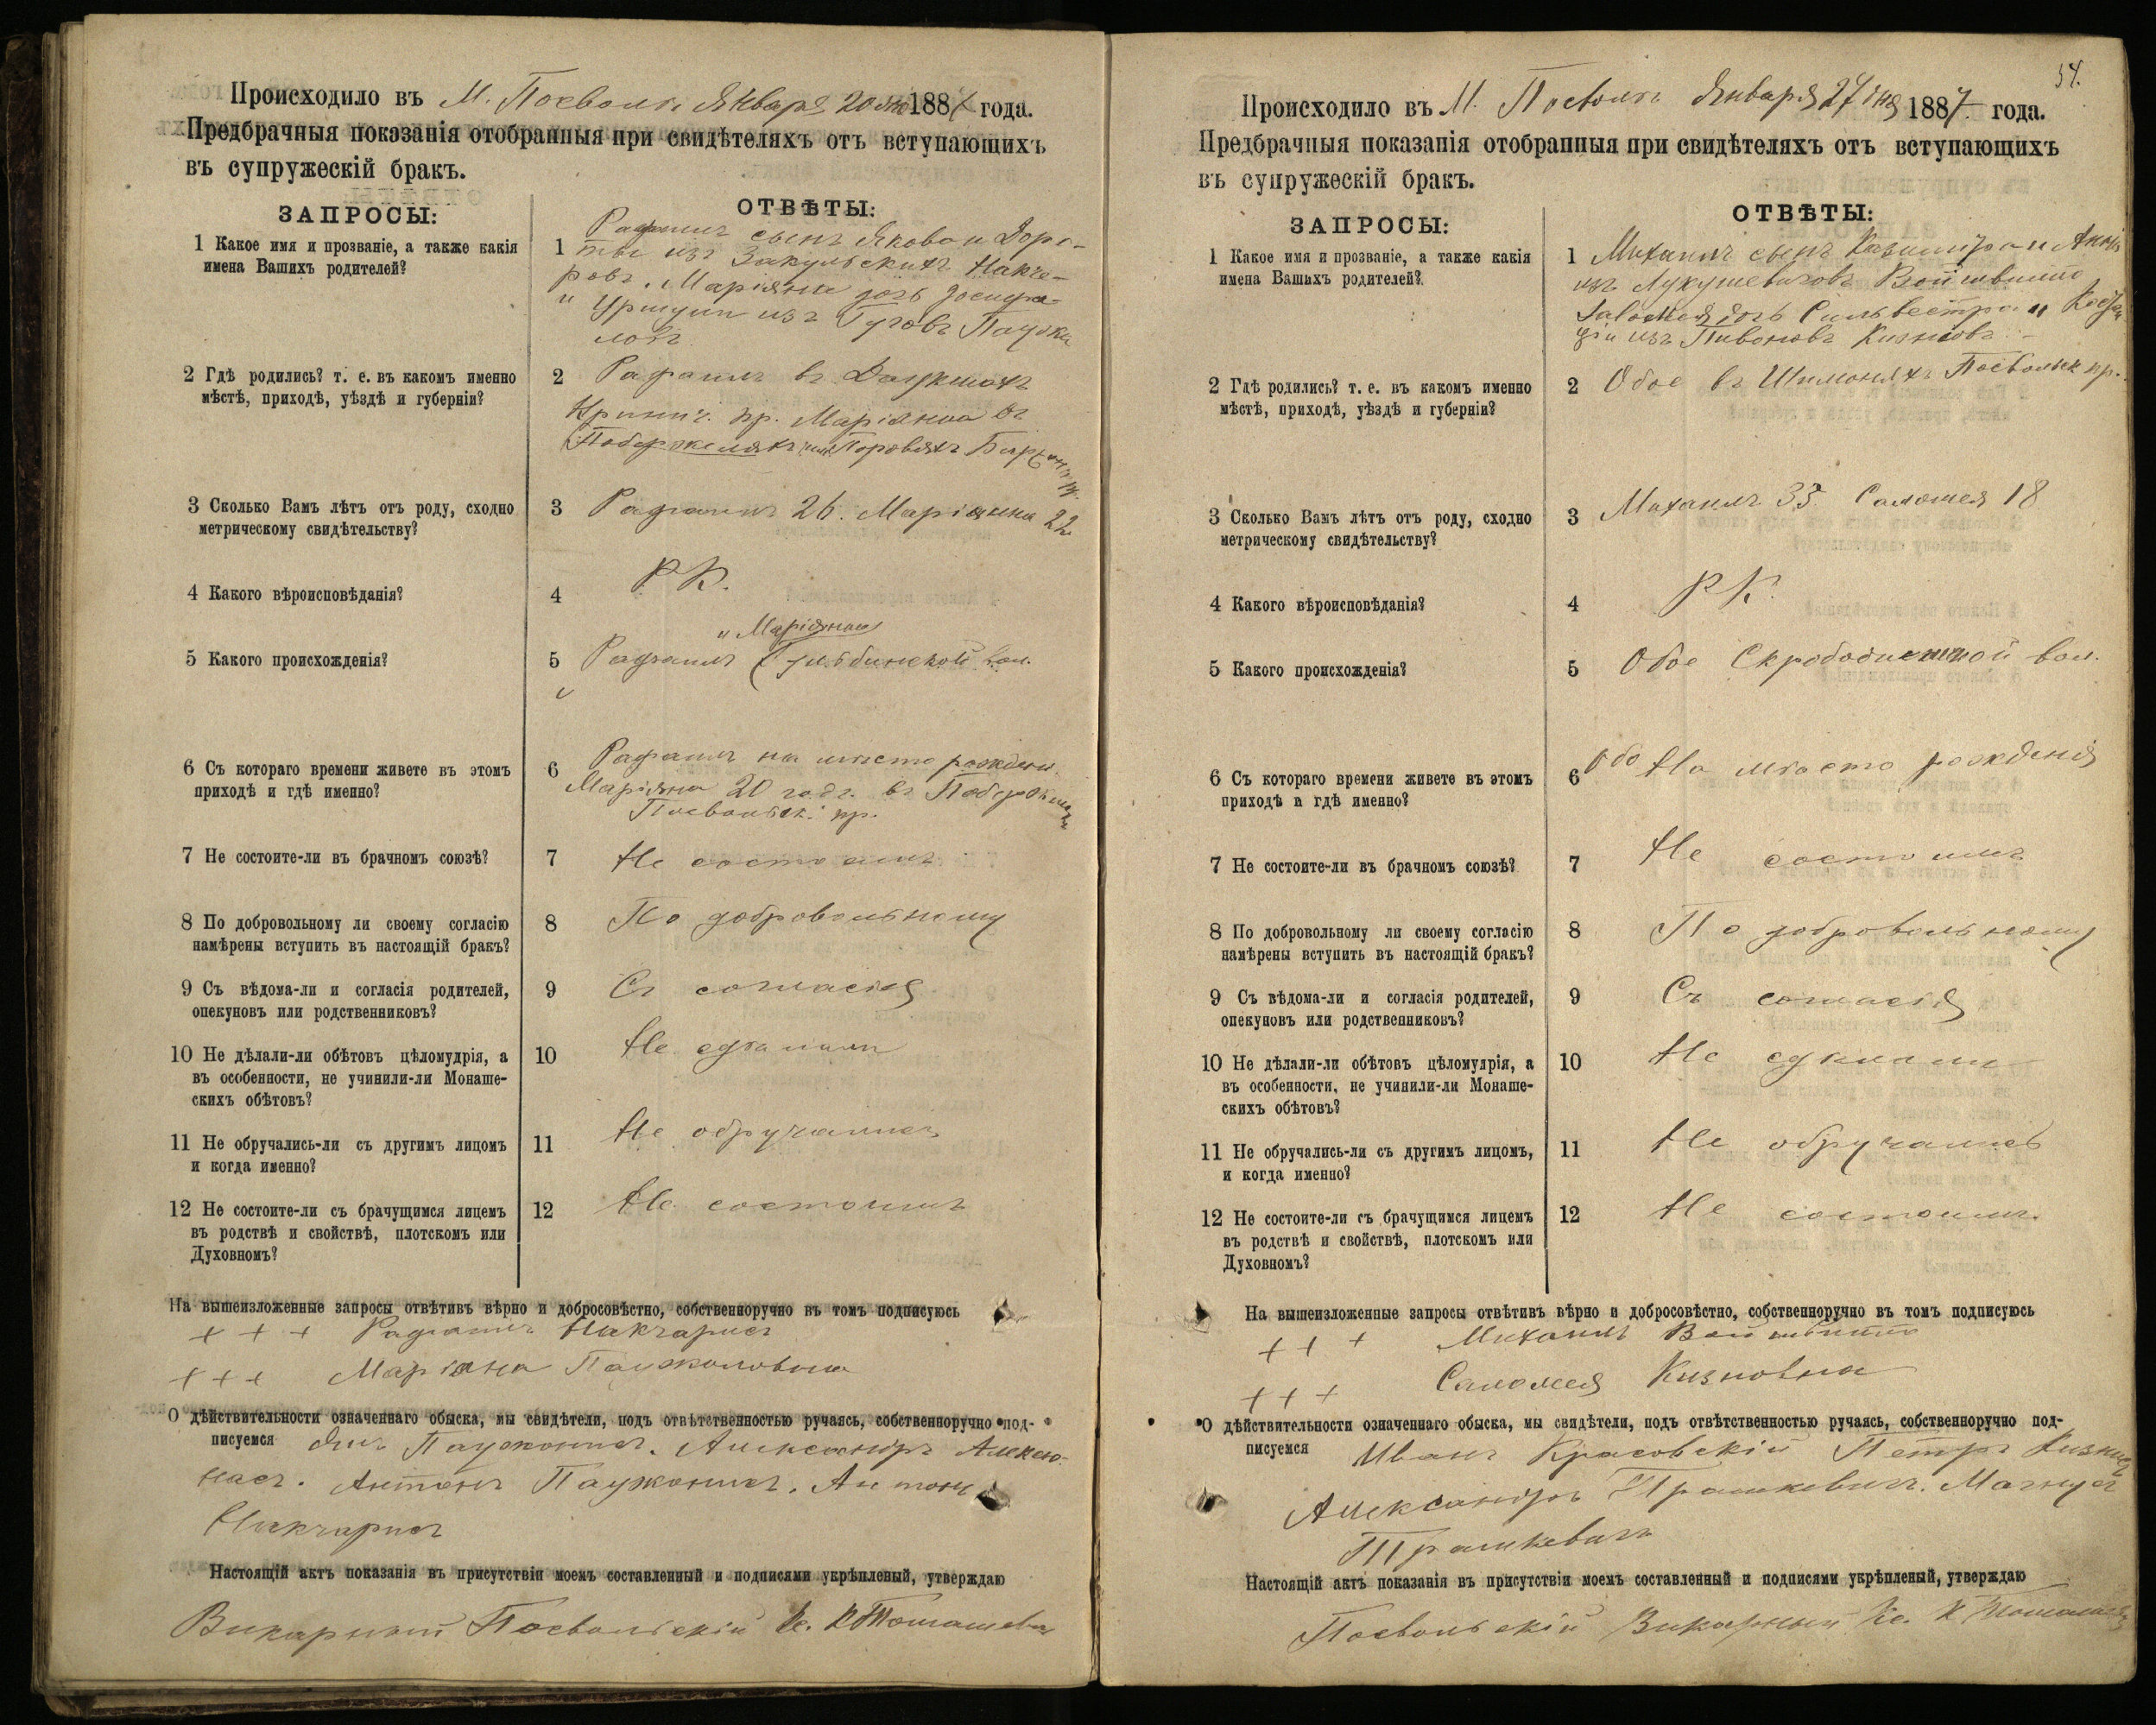 Происходило въ М. Посволѣ Января 20 дня 1887 года.
Предбрачныя показанія отобранныя при свидѣтеляхъ отъ вступающихъ
въ супружескій бракъ.
ЗАПРОСЫ:
ОТВѢТЫ:
1 Какое имя и прозваніе, а также какія
имена Вашихъ родителей?
1 Рафаилъ сынъ Якова и Доро-
ты изъ Закульскихъ Накча-
ровъ. Маріянна дочь
и Уршули изъ
2 Гдѣ родились? т. е. въ какомъ именно
мѣстѣ, приходѣ, уѣздѣ и губерніи?
2 Рафаилъ въ
пр. Маріянна въ
3 Сколько Вамъ лѣтъ отъ роду, сходно
метрическому свидѣтельству?
3 Рафаилъ 26. Маріянна 22
4 Какого вѣроисповѣданія?
4 РК.
5 Какого происхожденія?
и Маріянна
5 Рафаилъ вол.
6 Съ котораго времени живете въ этомъ
приходѣ и гдѣ именно?
6 Рафаилъ на мѣстѣ рожден.
Маріяна 20 годъ въ
Посвольск. пр.
7 Не состоите-ли въ брачномъ союзѣ?
7 Не состоимъ
8 По добровольному ли своему согласію
намѣрены вступить въ настоящій бракъ?
8 По добровольному
9 Съ вѣдома-ли и согласія родителей,
опекуновъ или родственниковъ?
9 Съ согласія
10 Не дѣлали-ли обѣтовъ цѣломудрія, а
въ особенности, не учинили-ли Монаше-
скихъ обѣтовъ?
10 Не сдѣлали
11 Не обручались-ли съ другимъ лицомъ
и когда именно?
11 Не обручались
12 Не состоите-ли съ брачущимся лицемъ
въ родствѣ и свойствѣ, плотскомъ или
Духовномъ?
12 Не состоимъ
На вышеизложенные запросы отвѣтивъ вѣрно и добросовѣстно, собственноручно въ томъ подписуюсь
+ + + Рафаилъ Накчарисъ
+ + + Маріяна
О дѣйствительности означеннаго обыска, мы свидѣтели, подъ отвѣтственностью ручаясь, собственноручно под-
писуемся Янъ Александръ
Антонъ Антонъ
Накчарисъ
Настоящій актъ показанія въ присутствіи моемъ составленный и подписями укрѣпленый, утверждаю
Викарный Посвольскій Кс.
54.
Происходило въ М. Посволѣ Января 27 дня 1887 года.
Предбрачныя показанія отобранныя при свидѣтеляхъ отъ вступающихъ
въ супружескій бракъ.
ЗАПРОСЫ:
ОТВѢТЫ:
1 Какое имя и прозваніе, а также какія
имена Вашихъ родителей?
1 Михаилъ сынъ Казимира и Анны
изъ Лукушевичовъ
дочь Сильвестра и
изъ Пивоновъ
2 Гдѣ родились? т. е. въ какомъ именно
мѣстѣ, приходѣ, уѣздѣ и губерніи?
2 Обое въ Шимоняхъ Посвольск пр.
3 Сколько Вамъ лѣтъ отъ роду, сходно
метрическому свидѣтельству?
3 Михаилъ 35 Саломея 18
4 Какого вѣроисповѣданія?
4 РК.
5 Какого происхожденія?
5 Обое вол.
6 Съ котораго времени живете въ этомъ
приходѣ и гдѣ именно?
6 Обо На мѣстѣ рожденія
7 Не состоите-ли въ брачномъ союзѣ?
7 Не состоимъ
8 По добровольному ли своему согласію
намѣрены вступить въ настоящій бракъ?
8 По добровольному
9 Съ вѣдома-ли и согласія родителей,
опекуновъ или родственниковъ?
9 Съ согласія
10 Не дѣлали-ли обѣтовъ цѣломудрія, а
въ особенности, не учинили-ли Монаше-
скихъ обѣтовъ?
10 Не сдѣлали
11 Не обручались-ли съ другимъ лицомъ,
и когда именно?
11 Не обручались
12 Не состоите-ли съ брачущимся лицемъ
въ родствѣ и свойствѣ, плотскомъ или
Духовномъ?
12 Не состоимъ.
На вышеизложенные запросы отвѣтивъ вѣрно и добросовѣстно, собственноручно въ томъ подписуюсь
+ + + Михаилъ
+ + + Саломея Кизновна
О дѣйствительности означеннаго обыска, мы свидѣтели, подъ отвѣтственностью ручаясь, собственноручно под-
писуемся Иванъ Красовскій Петръ
Александръ Магнусъ
Настоящій актъ показанія въ присутствіи моемъ составленный и подписями укрѣпленый, утверждаю
Посвольскій Викарный Кс.